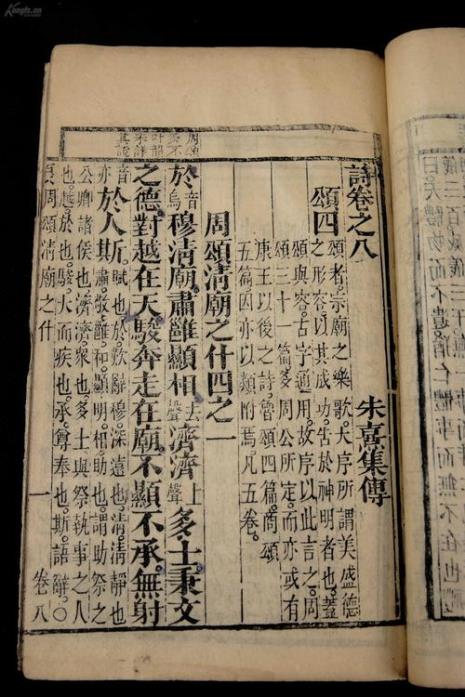 Kongfz.cn
周頌
多不
叶韻
未詳
其說
詩卷之八
朱熹集傳
頌四
頌者宗廟之樂歌大序所謂美盛德
之形容以其成功告於神明者也蓋
頌與容古字通用故序以此言之周
頌三十一篇多周公所定而亦或有
康王以後之詩魯頌四篇商頌
五篇因亦以類附焉凡五卷
周頌清廟之什四之一
於音烏穆清廟肅雝顯相去聲濟濟上聲多士秉文
之德對越在天駿奔走在廟不顯不承無射
音亦於人斯
賦也於歎辭穆深遠也清清靜也
肅敬雝和顯明相助也謂助祭之
公卿諸侯也濟濟眾也多士與祭執事之人
也越於也駿大而疾也承尊奉也斯語辭○
周頌清廟之什 一 卷八
曰天體物而不遺猶仁體事而無不在也